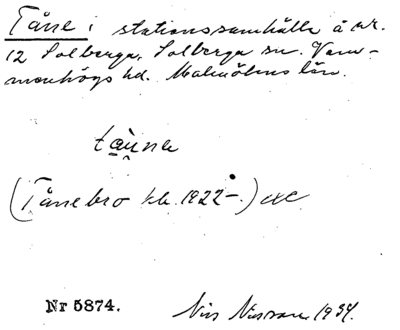 Tåne i stationssamhälle å nr.
12 Solberga, Solberga sn. Vem-
menhögs hd. Malmöhus län.
(Tånebro kb. 1922–.)
Nr 5874.
Nils Nilsson 1934.